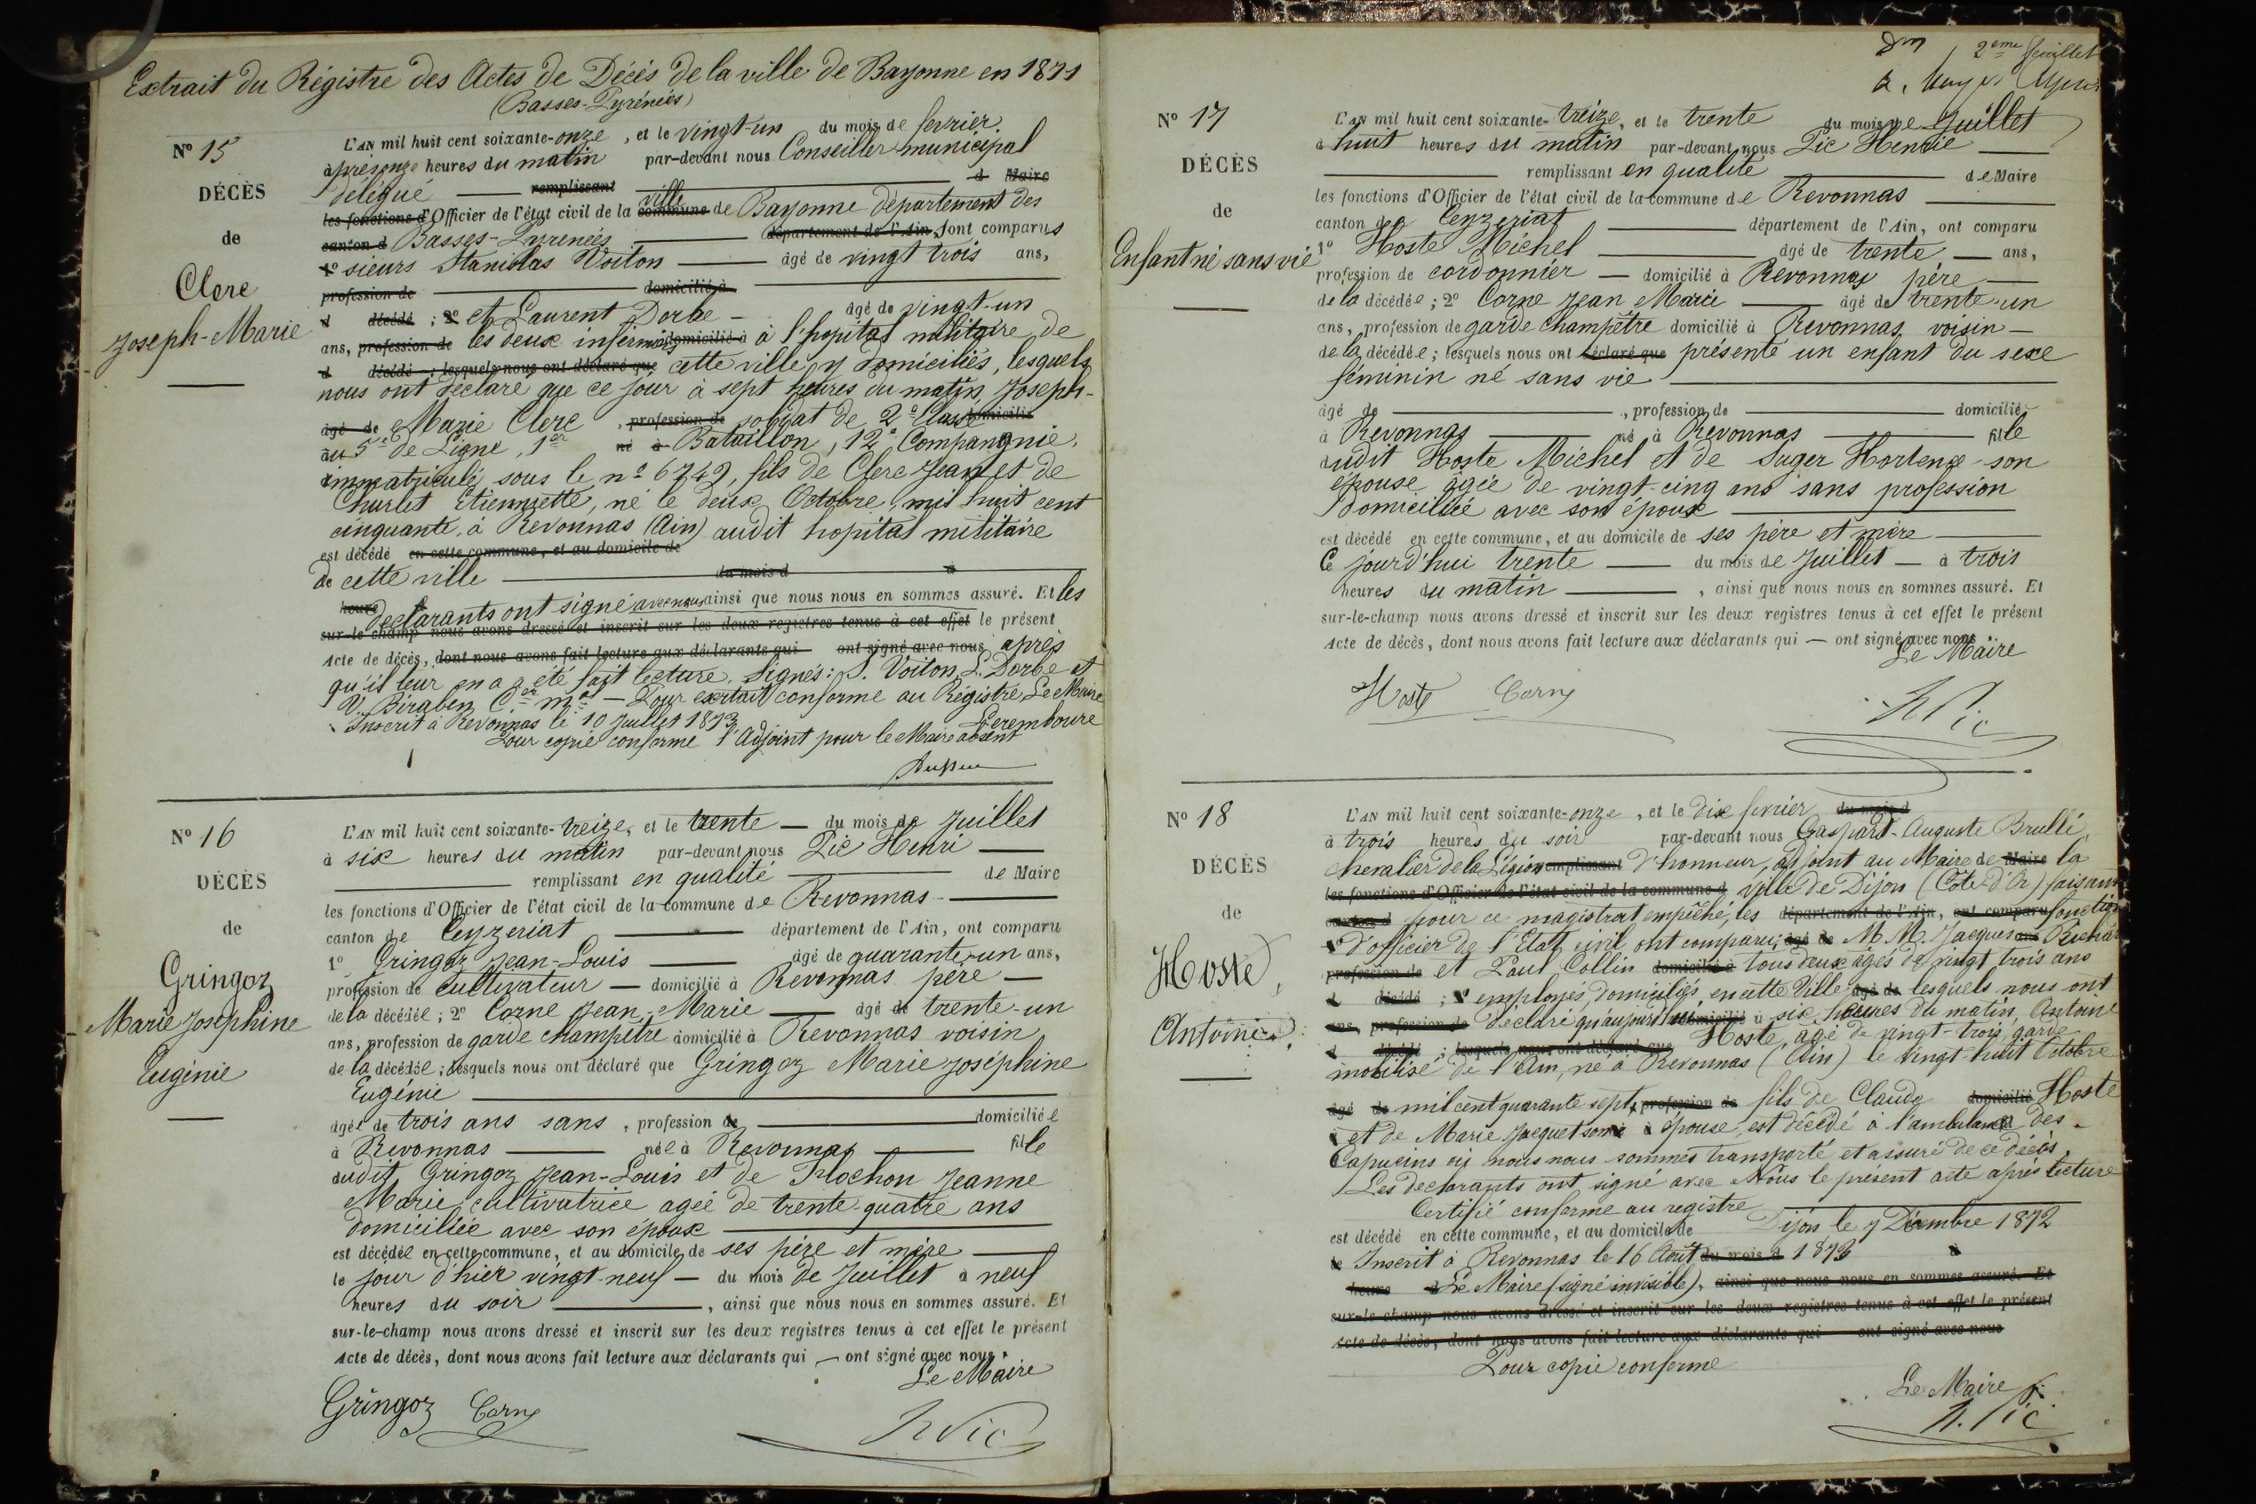 Extrait du Régistre des Actes de Décés de la ville de Bayonne en 1871
(Basses-Pyrénées)
N° 15
DÉCÈS
de
Clerc
Joseph-Marie
L'AN mil huit cent soixante-onze, et le vingt-un du mois de fevrier
à près onze heures du matin par-devant nous Conseiller municipal
délégué remplissant d Maire
les fonctions d'Officier de l'état civil de la commune ville de Bayonne département des
canton d Basses-Pyrenées département de l'Ain, sont comparus
1° sieurs Stanislas Voiton âgé de vingt trois ans,
profession de domicilié à
d décédé ; 2° et Laurent Dorbe - âgé de vingt-un
ans, profession de les deux infirmiers domicilié à à l'hopital militaire de
d décédé ; lesquels nous ont déclaré que cette ville y domiciliés, lesquels
nous ont déclaré que ce jour à sept heures du matin, Joseph-
âgé de Marie Clerc, profession de soldat de 2e Classe domicilié
au 5e de Ligne, 1er né à Bataillon, 12e Compangnie,
immatriculé sous le n° 6749, fils de Clerc Jean et de
Churlet Etiennette, né le deux Octobre mil huit cent
cinquante, à Revonnas (Ain) audit hopital militaire
est décédé en cette commune, et au domicile de
de cette ville du mois d à
heure déclarants ont signé avec nous ainsi que nous nous en sommes assuré. Et les
sur-le-champ nous avons dressé et inscrit sur les deux registres tenus à cet effet le présent
Acte de décès, dont nous avons fait lecture aux déclarants qui ont signé avec nous après
qu'il leur en a été fait lecture. Signés: S. Voiton, L. Dorbe et
V. Biraben Cer mal — Pour extrait conforme au Régistre Le Maire
Inscrit à Revonnas le 10 Juillet 1873
Pour copie conforme l'Adjoint pour le Maire absent
N° 16
DÉCÈS
de
Gringoz
Marie Josephine
Eugénie
L'AN mil huit cent soixante-treize, et le trente — du mois de Juillet
à six heures du matin par-devant nous Pic Henri
remplissant en qualité de Maire
les fonctions d'Officier de l'état civil de la commune de Revonnas
canton de Ceyzeriat département de l'Ain, ont comparu
1° Gringoz Jean-Louis âgé de quarante-un ans,
profession de cultivateur — domicilié à Revonnas père —
de la décédée ; 2° Corne Jean-Marie âgé de trente-un
ans, profession de garde champêtre domicilié à Revonnas voisin
de la décédée ; lesquels nous ont déclaré que Gringoz Marie Joséphine
Eugénie
âgée de trois ans sans, profession de domiciliée
à Revonnas née à Revonnas fille
dudit Gringoz Jean-Louis et de Flochon Jeanne
Marie cultivatrice agée de trente-quatre ans
domiciliée avec son époux
est décédée en cette commune, et au domicile de ses père et mère
le jour d'hier vingt-neuf — du mois de Juillet à neuf
heures du soir, ainsi que nous nous en sommes assuré. Et
sur-le-champ nous avons dressé et inscrit sur les deux registres tenus à cet effet le présent
Acte de décès, dont nous avons fait lecture aux déclarants qui — ont signé avec nous.
Le Maire
Gringoz Corne H Pic
2eme feuillet
N° 17
DÉCÈS
de
Enfant né sans vie
L'AN mil huit cent soixante-treize, et le trente du mois de Juillet
à huit heures du matin par-devant nous Pic Henrie
remplissant en qualité de Maire
les fonctions d'Officier de l'état civil de la commune de Revonnas
canton de Ceyzeriat département de l'Ain, ont comparu
1° Hoste Michel âgé de trente — ans,
profession de cordonnier — domicilié à Revonnas père —
de la décédée ; 2° Corne Jean Marie âgé de trente-un
ans, profession de garde champêtre domicilié à Revonnas voisin —
de la décédée ; lesquels nous ont déclaré que présenté un enfant du sexe
féminin né sans vie
âgé de, profession de domicilié
à Revonnas né à Revonnas fille
dudit Hoste Michel et de Suger Hortense son
épouse agée de vingt-cinq ans sans profession
domiciliée avec son époux
est décédé en cette commune, et au domicile de ses père et mère
Ce jourd'hui trente du mois de Juillet — à trois
heures du matin, ainsi que nous nous en sommes assuré. Et
sur-le-champ nous avons dressé et inscrit sur les deux registres tenus à cet effet le présent
Acte de décès, dont nous avons fait lecture aux déclarants qui — ont signé avec nous
Le Maire
Hoste Corne H Pic
N° 18
DÉCÈS
de
Hoste,
Antoine.
L'AN mil huit cent soixante-onze, et le dix fevrier du mois d
à trois heures du soir par-devant nous Gaspard-Auguste Brullé,
chevalier de la Légion remplissant d'honneur, adjoint au Maire de Maire la
les fonctions d'Officier de l'état civil de la commune d ville de Dijon (Côte-d'Or) faisant
canton d pour ce magistrat empêché, les département de l'Ain, ont comparu fonctions
1° d'officier de l'Etat civil ont comparu; âgé de M.M. Jacques ans Richard
profession de et Paul Collin domicilié à tous deux agés de vingt trois ans
d décédé ; 2° employés, domiciliés en cette Ville âgé de lesquels nous ont
ans, profession de déclaré qu'aujourd'hui domicilié à six heures du matin, Antoine
d décédé ; lesquels nous ont déclaré que Hoste, agé de vingt-trois, garde
mobilisé de l'Ain, né à Revonnas (Ain) le vingt-huit Octobre
âgé de mil cent quarante sept, profession de fils de Claude domicilié Hoste
à et de Marie Jacquet son né à épouse, est décédé à l'ambulance des
Capucins où nous nous sommes transporté et assuré de ce décès,
Les declarants ont signé avec Nous le présent acte après lecture
Certifié conforme au registre
est décédé en cette commune, et au domicile de Dijon le 7 Décembre 1872
le Inscrit à Revonnas le 16 Août du mois d 1873 à
heure d Le Maire (signé invisible), ainsi que nous nous en sommes assuré. Et
sur-le-champ nous avons dressé et inscrit sur les deux registres tenus à cet effet le présent
Acte de décès, dont nous avons fait lecture aux déclarants qui ont signé avec nous
Pour copie conforme
Le Maire
H. Pic